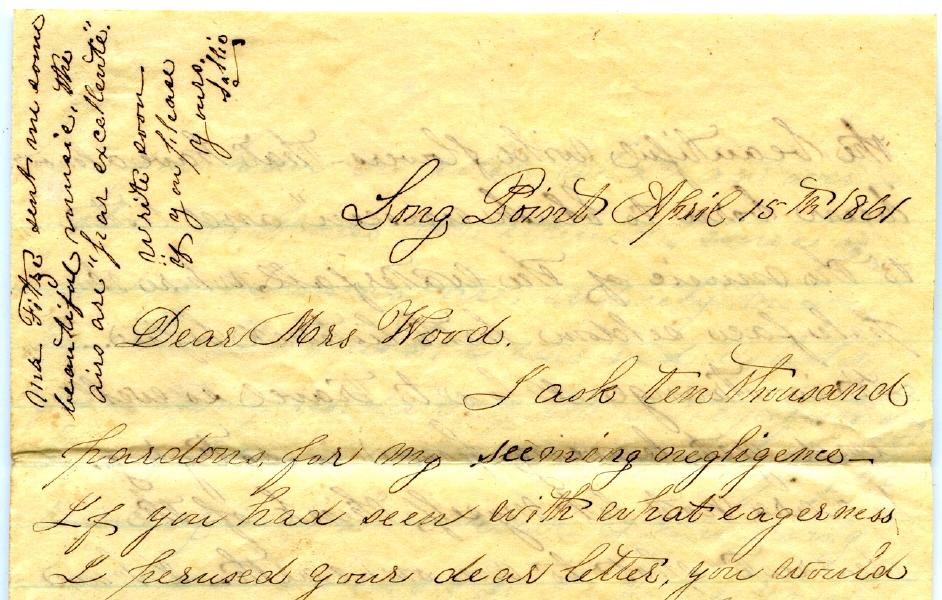 Long Point April 15th 1861
Dear Mrs Wood.
I ask ten thousand
pardons, for my seeming negligence—
If you had seen with what eagerness
I perused your dear letter, you would
Mr Fitz sent me some
beautiful music, the
airs are "par excellente".
Write soon
if you please
yours,
Sallie